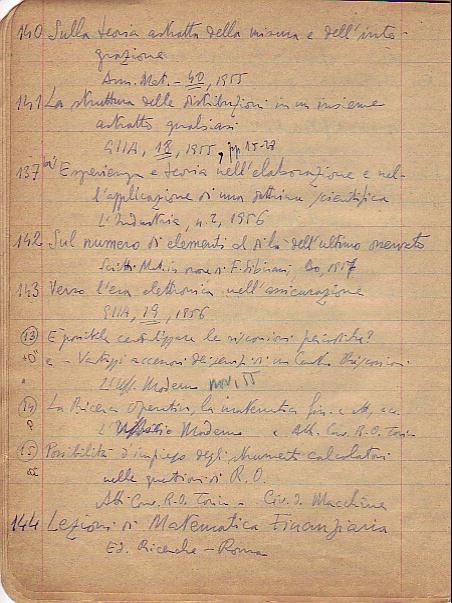 140 Sulla teoria astratta della misura e dell'inte-
grazione
Ann. Mat. - 40, 1955
141 La struttura delle distribuzioni in un insieme
astratto qualsiasi
GIIA, 18, 1955, pp 15-28
137 bis Esperienza e teoria nell'elaborazione e nel-
l'applicazione di una dottrina scientifica
L'Industria, n. 2, 1956
142 Sul numero di elementi al di là dell'ultimo osservato
Scritti Mat. in onore di F. Sibirani, Bo, 1957
143 Verso l'era elettronica nell'assicurazione
GIIA, 19, 1956
13 È possibile le riscossioni periodiche?
e - Vantaggi accessori dei servizi di un Centro Riscossioni
L'Uff. Moderno nov, 55
14 La Ricerca Operativa, la matematica fin. e att, ecc.
L'Ufficio Moderno e Atti Conv. R.O. Torino
15 Possibilità d'impiego degli strumenti calcolatori
nelle questioni di R.O.
Atti Conv. R.O. Torino e Civ. d. Macchine
144 Lezioni di Matematica Finanziaria
Ed. Ricerche - Roma